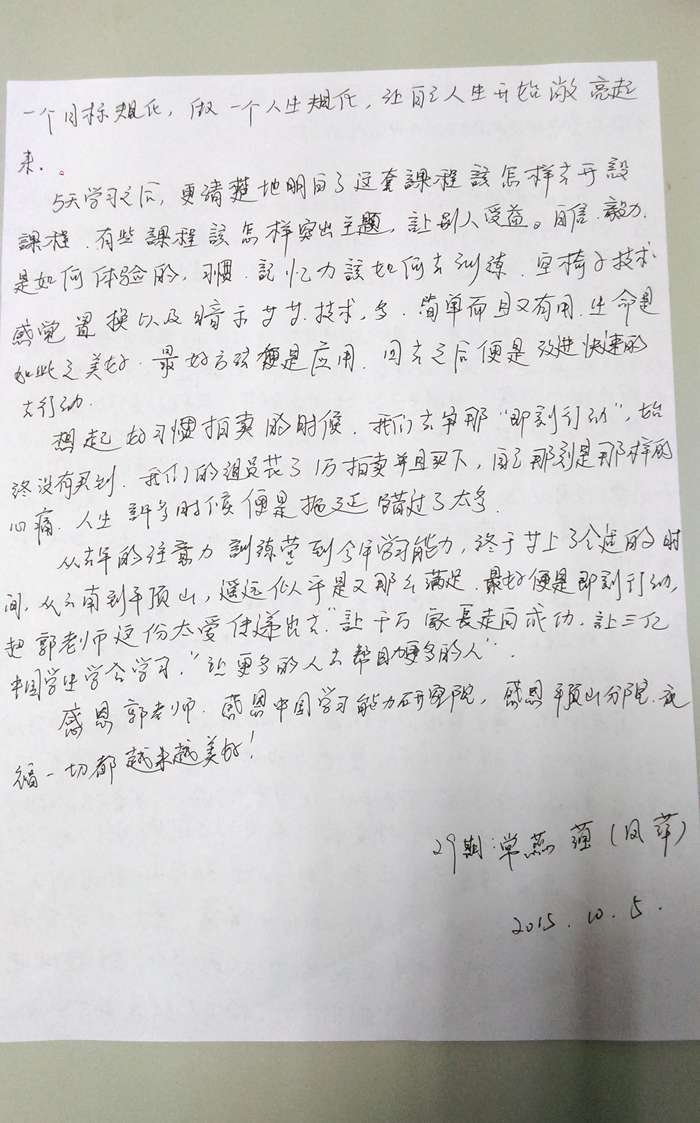 一个目标规化，做一个人生规化，让自己人生开始敞亮起
来.
5天学习之后，更清楚地明白了这套課程該怎样去开設
課程.有些課程該怎样突出主题，让别人受益。自信.毅力.
是如何体验的，习慣.記忆力該如何去训练.空椅子技术
感觉置换以及暗示技术，多.简单而且又有用.生命是
如此之美好.最好方法便是应用.回去之后便是改进快速的
去行动.
想起好习慣拍卖的时候.我们去争那"即刻行动"，始
终没有买到.我们的组员花了1万拍卖并且买下，自己那刻是那样的
心痛.人生許多时候便是拖延错过了太多.
从去年的注意力訓練营到今年学习能力，终于上了合适的时
间，从云南到平顶山，遥远似乎是又那么满足.最好便是即刻行动，
把郭老师这份大爱传递出去."让千万家長走向成功.让三亿
中国学生学会学习."让更多的人去帮助更多的人".
感恩郭老师.感恩中国学习能力研究院，感恩平顶山分院.祝
福一切都越来越美好！
29期:常燕(凤萍)
2015.10.5.